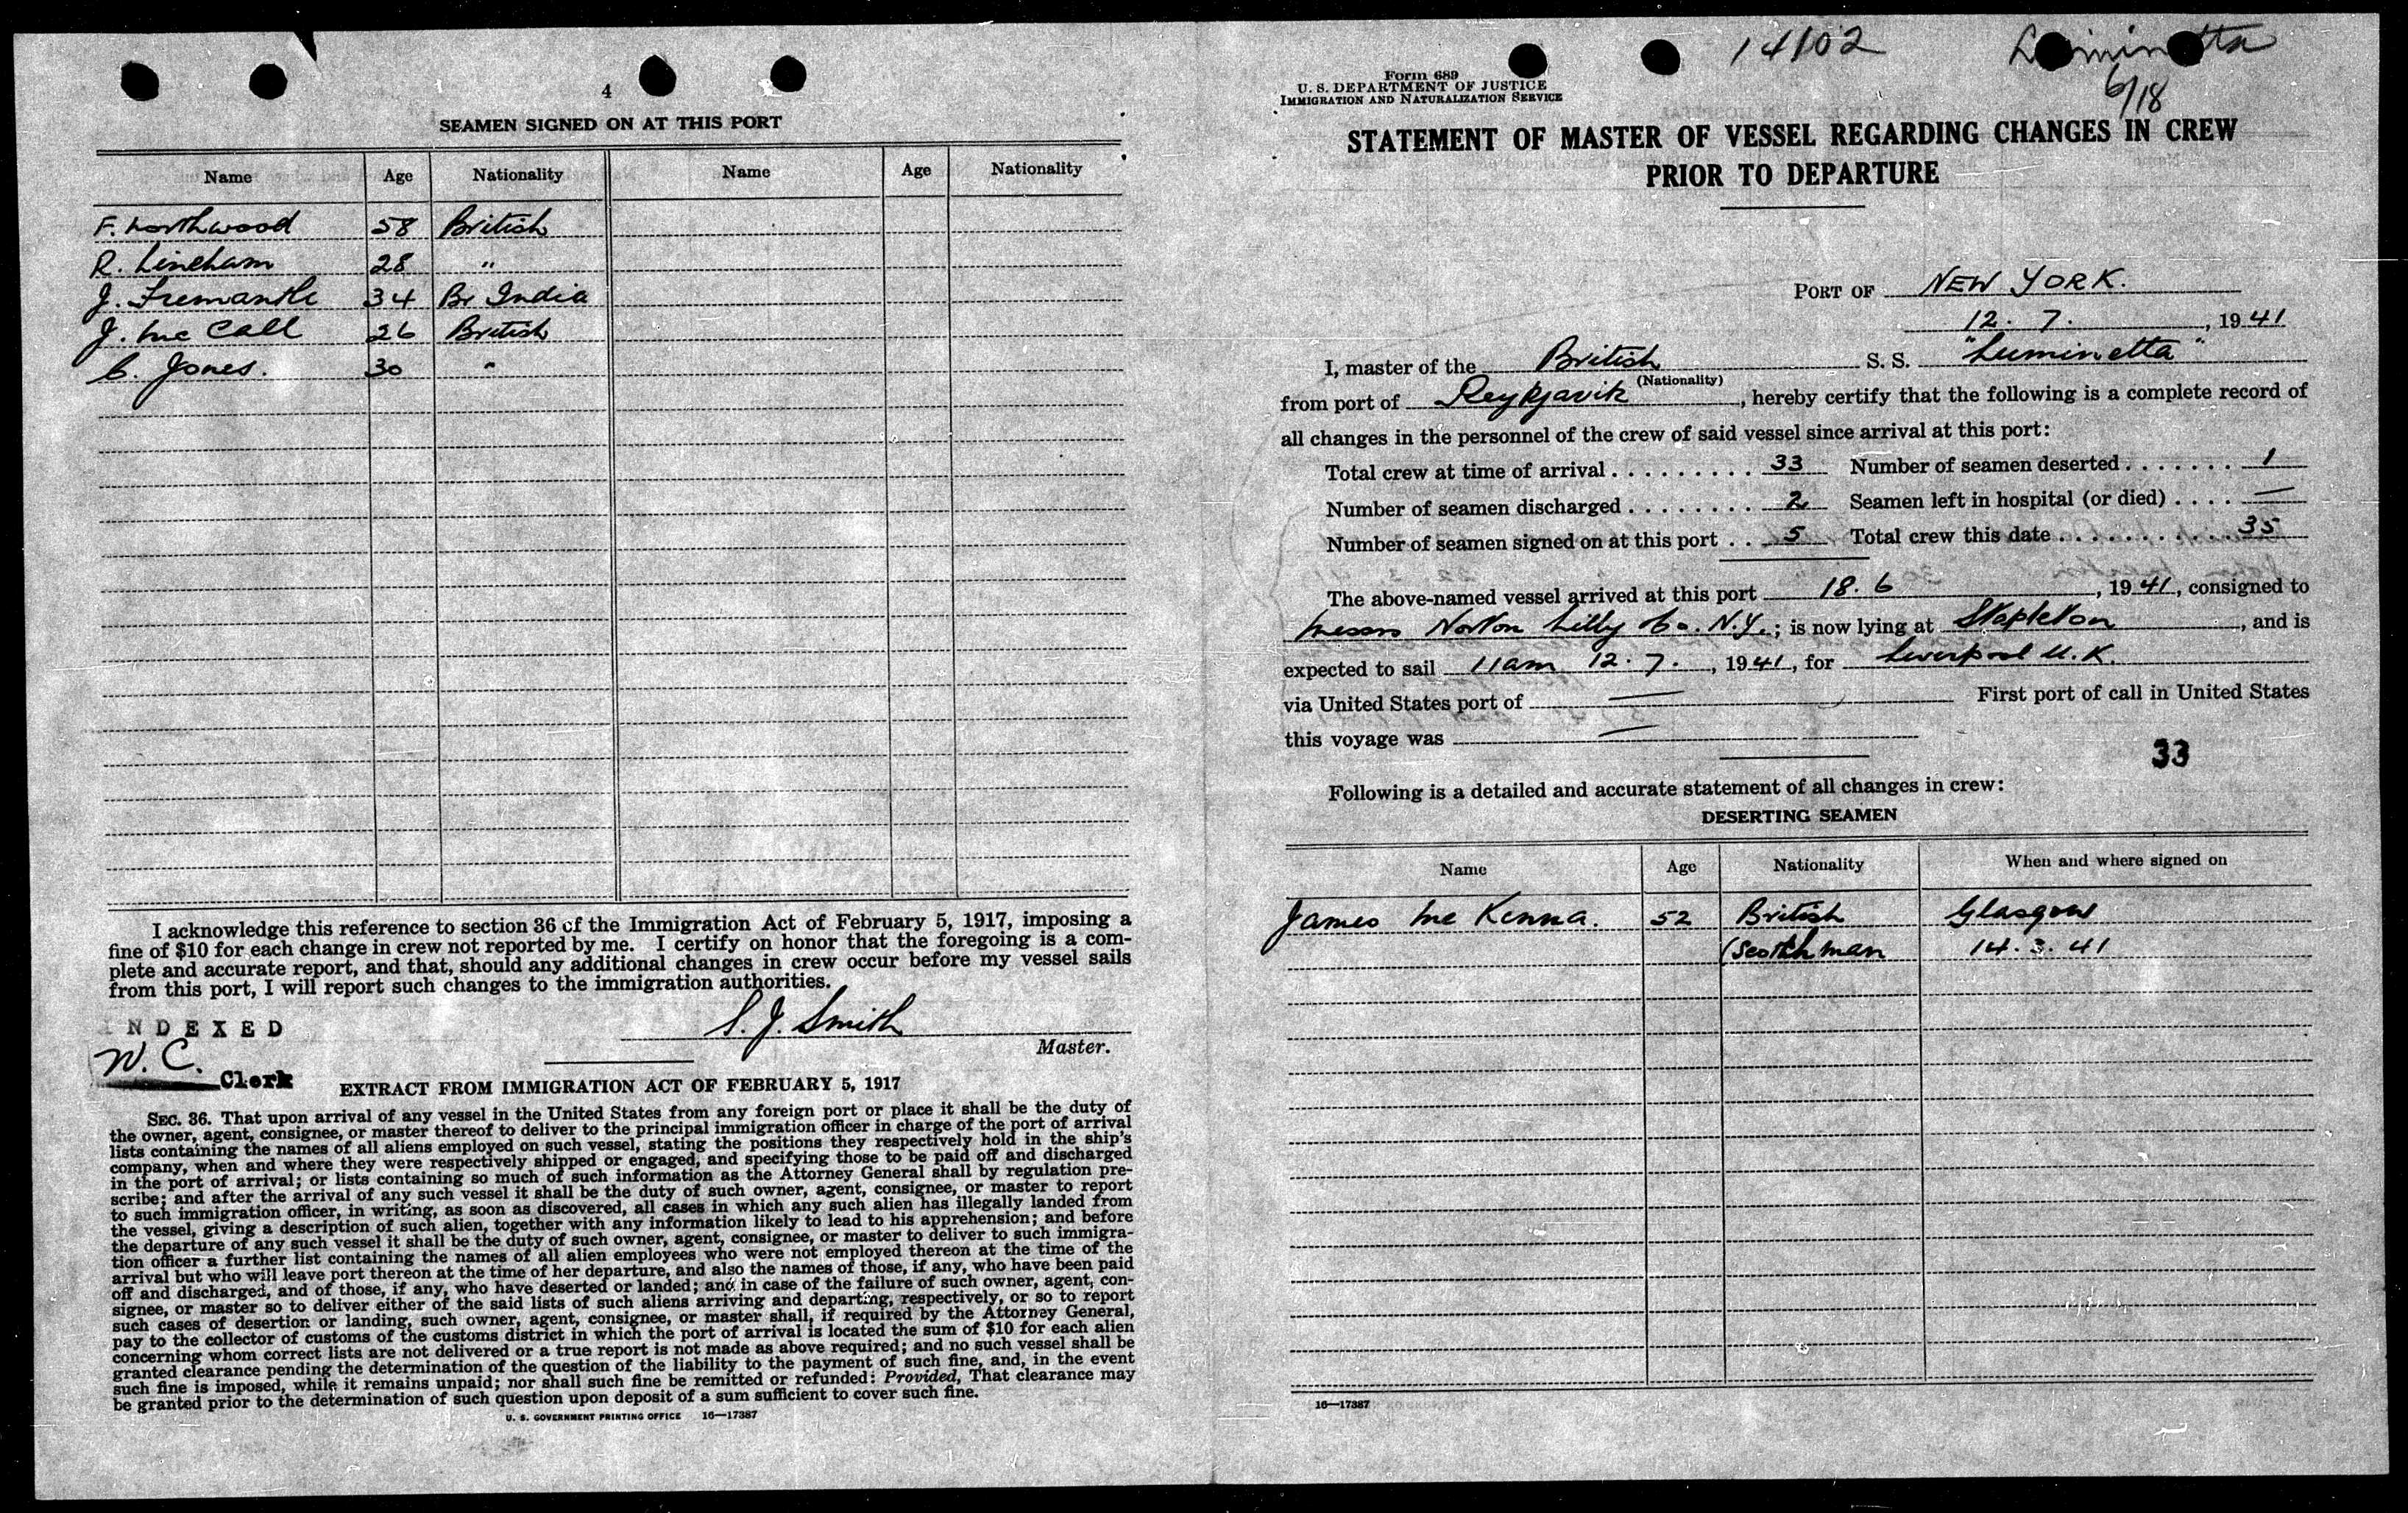 4
SEAMEN SIGNED ON AT THIS PORT
Name Age Nationality Name Age Nationality
F. Northwood 58 British
R. Lineham 28 "
J. Fremantle 34 Br India
J. Mc Call 26 British
C. Jones. 30 "
I acknowledge this reference to section 36 of the Immigration Act of February 5, 1917, imposing a
fine of $10 for each change in crew not reported by me. I certify on honor that the foregoing is a com-
plete and accurate report, and that, should any additional changes in crew occur before my vessel sails
from this port, I will report such changes to the immigration authorities.
INDEXED
S. J. Smith
Master.
W. C.
Clerk
EXTRACT FROM IMMIGRATION ACT OF FEBRUARY 5, 1917
SEC. 36. That upon arrival of any vessel in the United States from any foreign port or place it shall be the duty of
the owner, agent, consignee, or master thereof to deliver to the principal immigration officer in charge of the port of arrival
lists containing the names of all aliens employed on such vessel, stating the positions they respectively hold in the ship's
company, when and where they were respectively shipped or engaged, and specifying those to be paid off and discharged
in the port of arrival; or lists containing so much of such information as the Attorney General shall by regulation pre-
scribe; and after the arrival of any such vessel it shall be the duty of such owner, agent, consignee, or master to report
to such immigration officer, in writing, as soon as discovered, all cases in which any such alien has illegally landed from
the vessel, giving a description of such alien, together with any information likely to lead to his apprehension; and before
the departure of any such vessel it shall be the duty of such owner, agent, consignee, or master to deliver to such immigra-
tion officer a further list containing the names of all alien employees who were not employed thereon at the time of the
arrival but who will leave port thereon at the time of her departure, and also the names of those, if any, who have been paid
off and discharged, and of those, if any, who have deserted or landed; and in case of the failure of such owner, agent, con-
signee, or master so to deliver either of the said lists of such aliens arriving and departing, respectively, or so to report
such cases of desertion or landing, such owner, agent, consignee, or master shall, if required by the Attorney General,
pay to the collector of customs of the customs district in which the port of arrival is located the sum of $10 for each alien
concerning whom correct lists are not delivered or a true report is not made as above required; and no such vessel shall be
granted clearance pending the determination of the question of the liability to the payment of such fine, and, in the event
such fine is imposed, while it remains unpaid; nor shall such fine be remitted or refunded: Provided, That clearance may
be granted prior to the determination of such question upon deposit of a sum sufficient to cover such fine.
U. S. GOVERNMENT PRINTING OFFICE 16—17387
14102
Luminetta
6/18
Form 689
U. S. DEPARTMENT OF JUSTICE
IMMIGRATION AND NATURALIZATION SERVICE
STATEMENT OF MASTER OF VESSEL REGARDING CHANGES IN CREW
PRIOR TO DEPARTURE
PORT OF NEW YORK.
12. 7. , 1941
I, master of the British S. S. "Luminetta"
(Nationality)
from port of Reykjavik, hereby certify that the following is a complete record of
all changes in the personnel of the crew of said vessel since arrival at this port:
Total crew at time of arrival . . . . . . . . . 33 Number of seamen deserted . . . . . . . 1
Number of seamen discharged . . . . . . . . 2 Seamen left in hospital (or died) . . . . —
Number of seamen signed on at this port . . 5 Total crew this date . . . . . . . . . . 35
The above-named vessel arrived at this port 18. 6 , 1941, consigned to
Messrs Norton Lilly Co. N.Y.; is now lying at Stapleton, and is
expected to sail 11am 12. 7. , 1941, for Liverpool U.K.
via United States port of — First port of call in United States
this voyage was —
33
Following is a detailed and accurate statement of all changes in crew:
DESERTING SEAMEN
Name Age Nationality When and where signed on
James Mc Kenna. 52 British Glasgow
(Scotchman 14. 3. 41
16—17387